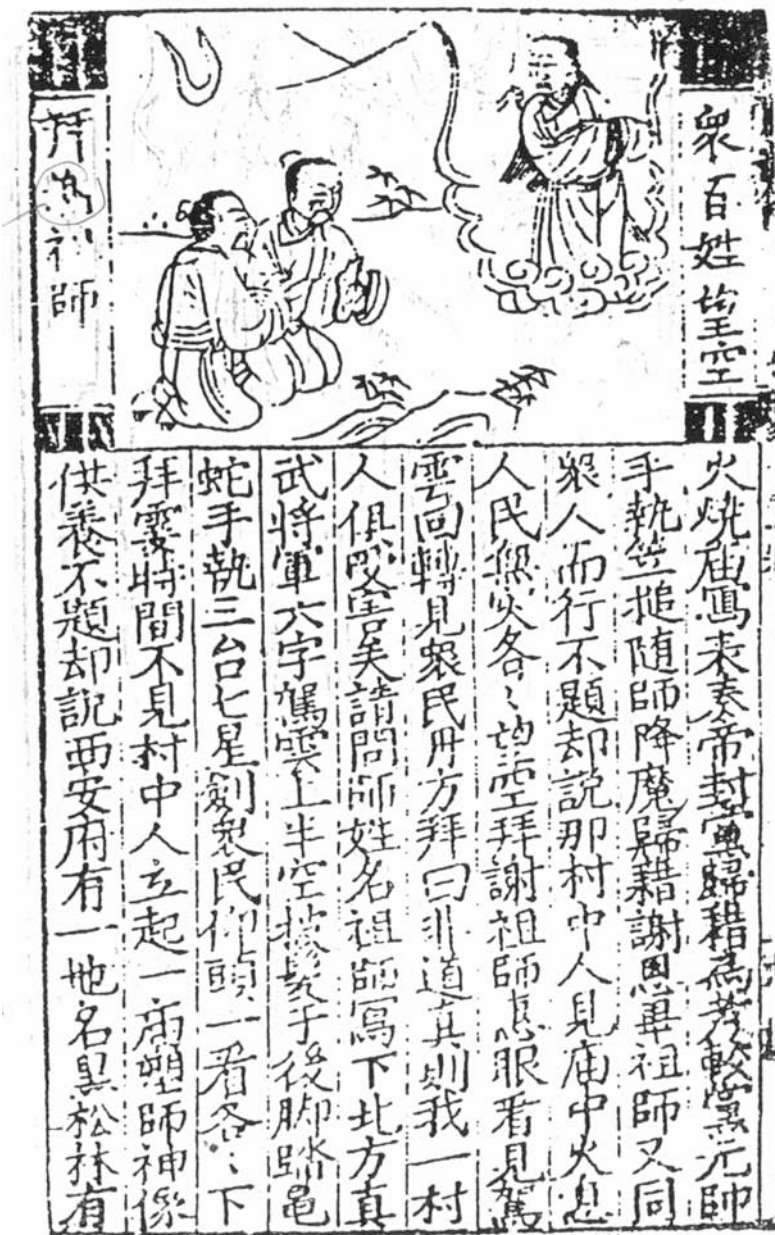 衆百姓望空
拜祖師
火燒庙寫表奏帝封黨歸籍為考較黨元帥
手執竺搥随師降魔歸籍謝恩畢祖師又同
衆人而行不題却説那村中人見庙中火息
人民無災各〻望空拜謝祖師惠眼看見駕
雲回轉見衆民方拜曰非道真則我一村
人俱受害矣請問師姓名祖師寫下北方真
武將軍六字駕雲上半空披髪于後脚踏龟
蛇手執三台七星劍衆民仰頭一看各〻下
拜霎時間不見村中人立起一庙塑師神像
供養不題却説西安府有一地名黒松林有